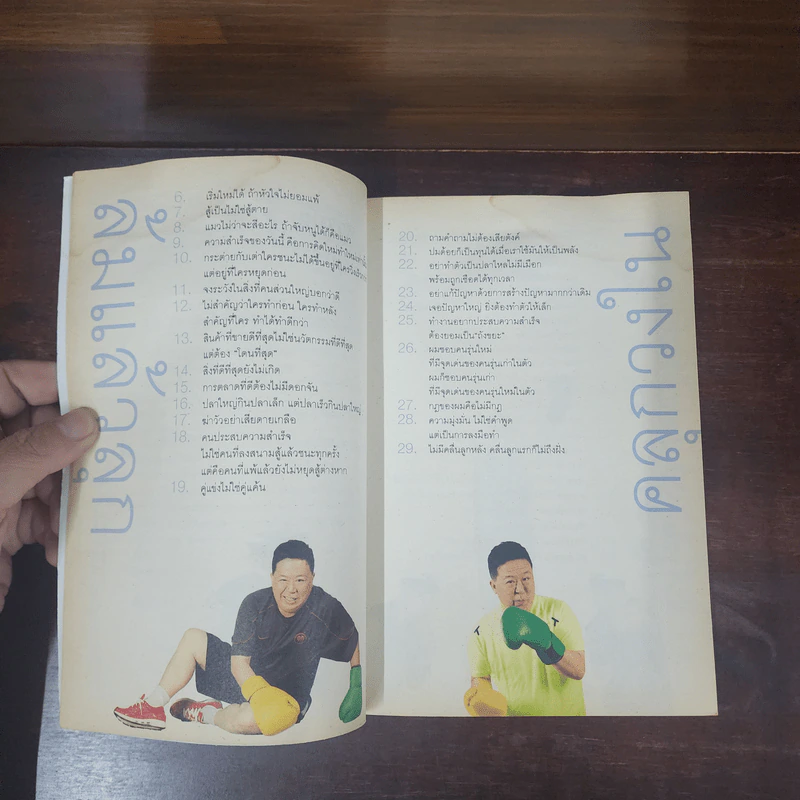 ล้มแล้วลุก
6. เริ่มใหม่ได้ ถ้าหัวใจไม่ยอมแพ้
7. สู้เป็นไม่ใช่สู้ตาย
8. แมวไม่ว่าจะสีอะไร ถ้าจับหนูได้ก็คือแมว
9. ความสำเร็จของวันนี้ คือการคิดใหม่ทำใหม่
10. กระต่ายกับเต่าใครชนะไม่ได้ขึ้นอยู่ที่ใครวิ่งเร็วกว่า
แต่อยู่ที่ใครหยุดก่อน
11. จงระวังในสิ่งที่คนส่วนใหญ่บอกว่าดี
12. ไม่สำคัญว่าใครทำก่อน ใครทำหลัง
สำคัญที่ใคร ทำได้ทำดีกว่า
13. สินค้าที่ขายดีที่สุดไม่ใช่นวัตกรรมที่ดีที่สุด
แต่ต้อง "โดนที่สุด"
14. สิ่งที่ดีที่สุดยังไม่เกิด
15. การตลาดที่ดีต้องไม่มีดอกจัน
16. ปลาใหญ่กินปลาเล็ก แต่ปลาเร็วกินปลาใหญ่
17. ฆ่าวัวอย่าเสียดายเกลือ
18. คนประสบความสำเร็จ
ไม่ใช่คนที่ลงสนามสู้แล้วชนะทุกครั้ง
แต่คือคนที่แพ้แล้วยังไม่หยุดสู้ต่างหาก
19. คู่แข่งไม่ใช่คู่แค้น
20. ถามคำถามไม่ต้องเสียตังค์
21. ปมด้อยก็เป็นทุนได้เมื่อเราใช้มันให้เป็นพลัง
22. อยาทำตัวเป็นปลาไหลไม่มีเมือก
พร้อมถูกเชือดได้ทุกเวลา
23. อย่าแก้ปัญหาด้วยการสร้างปัญหามากกว่าเดิม
24. เจอปัญหาใหญ่ ยิ่งต้องทำตัวให้เล็ก
25. ทำงานอยากประสบความสำเร็จ
ต้องยอมเป็น "ถังขยะ"
26. ผมชอบคนรุ่นใหม่
ที่มีจุดเด่นของคนรุ่นเก่าในตัว
ผมก็ชอบคนรุ่นเก่า
ที่มีจุดเด่นของคนรุ่นใหม่ในตัว
27. กฎของผมคือไม่มีกฎ
28. ความมุ่งมั่น ไม่ใช่คำพูด
แต่เป็นการลงมือทำ
29. ไม่มีคลื่นลูกหลัง คลื่นลูกแรกก็ไม่ถึงฝั่ง